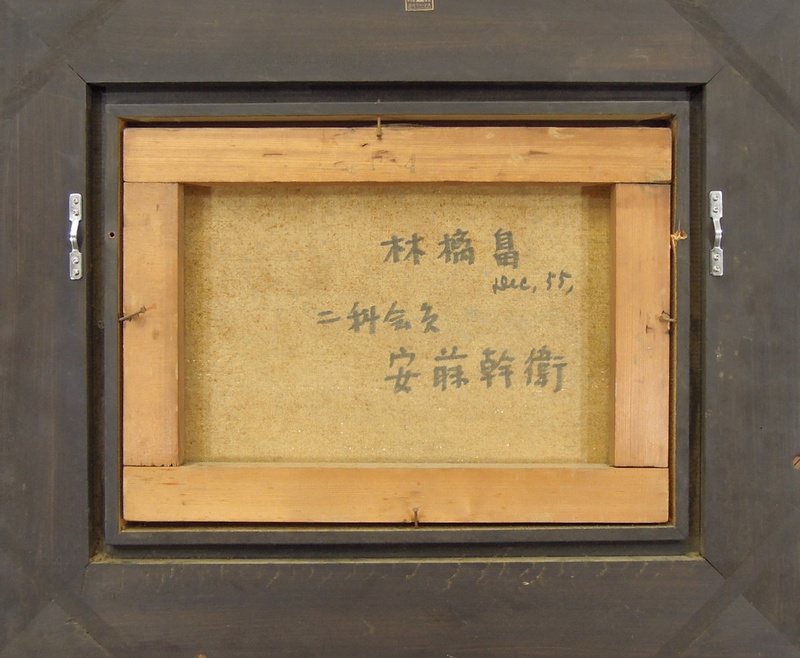 林檎畠
Dec, 55,
二科会員
安藤幹衛